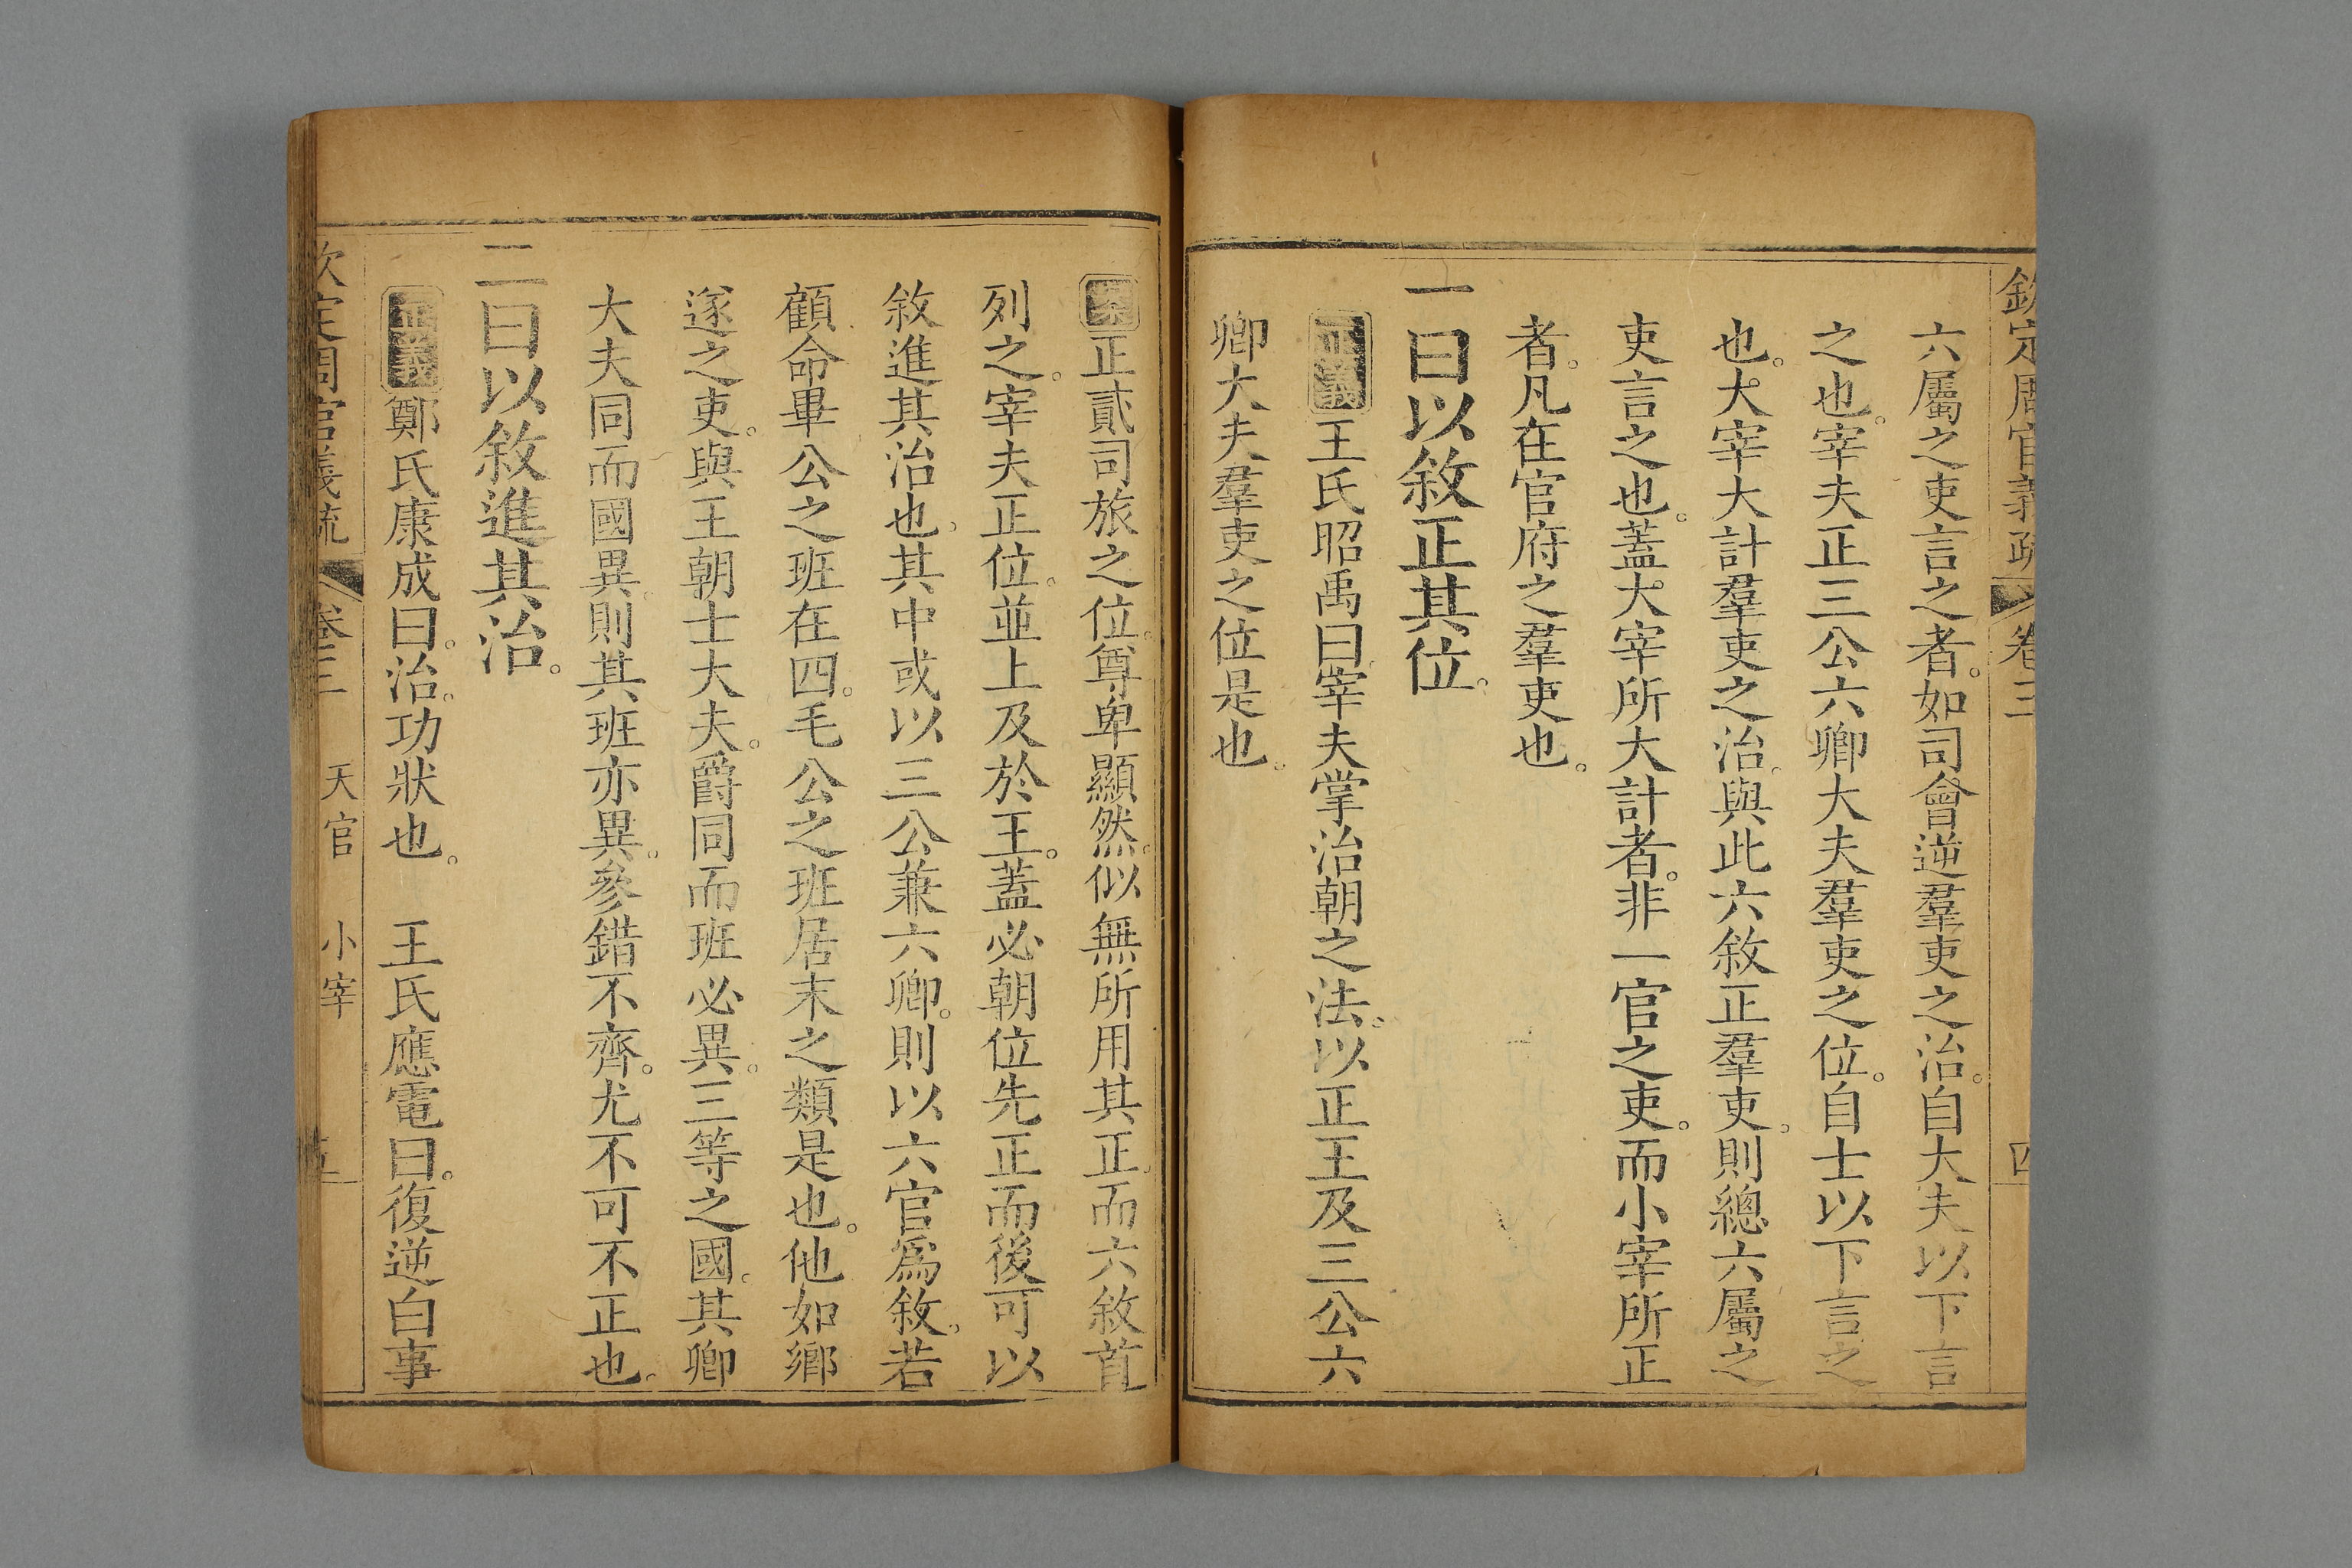 欽定周官義疏 卷三 四
六屬之吏言之者。如司會逆羣吏之治。自大夫以下言
之也。宰夫正三公六卿大夫羣吏之位。自士以下言之
也。大宰大計羣吏之治。與此六敘正羣吏。則總六屬之
吏言之也。蓋大宰所大計者。非一官之吏。而小宰所正
者。凡在官府之羣吏也。
一曰以敘正其位。
正義王氏昭禹曰宰夫掌治朝之法。以正王及三公六
卿大夫羣吏之位是也。
案正貳司旅之位。尊卑顯然。似無所用其正。而六敘首
列之。宰夫正位。並上及於王。蓋必朝位先正而後可以
敘進其治也。其中或以三公兼六卿。則以六官爲敘。若
顧命畢公之班在四。毛公之班居末之類是也。他如鄉
遂之吏。與王朝士大夫。爵同而班必異。三等之國。其卿
大夫同而國異。則其班亦異。參錯不齊。尤不可不正也。
二曰以敘進其治。
正義鄭氏康成曰。治。功狀也。 王氏應電曰。復逆白事
欽定周官義疏 卷三 天官 小宰